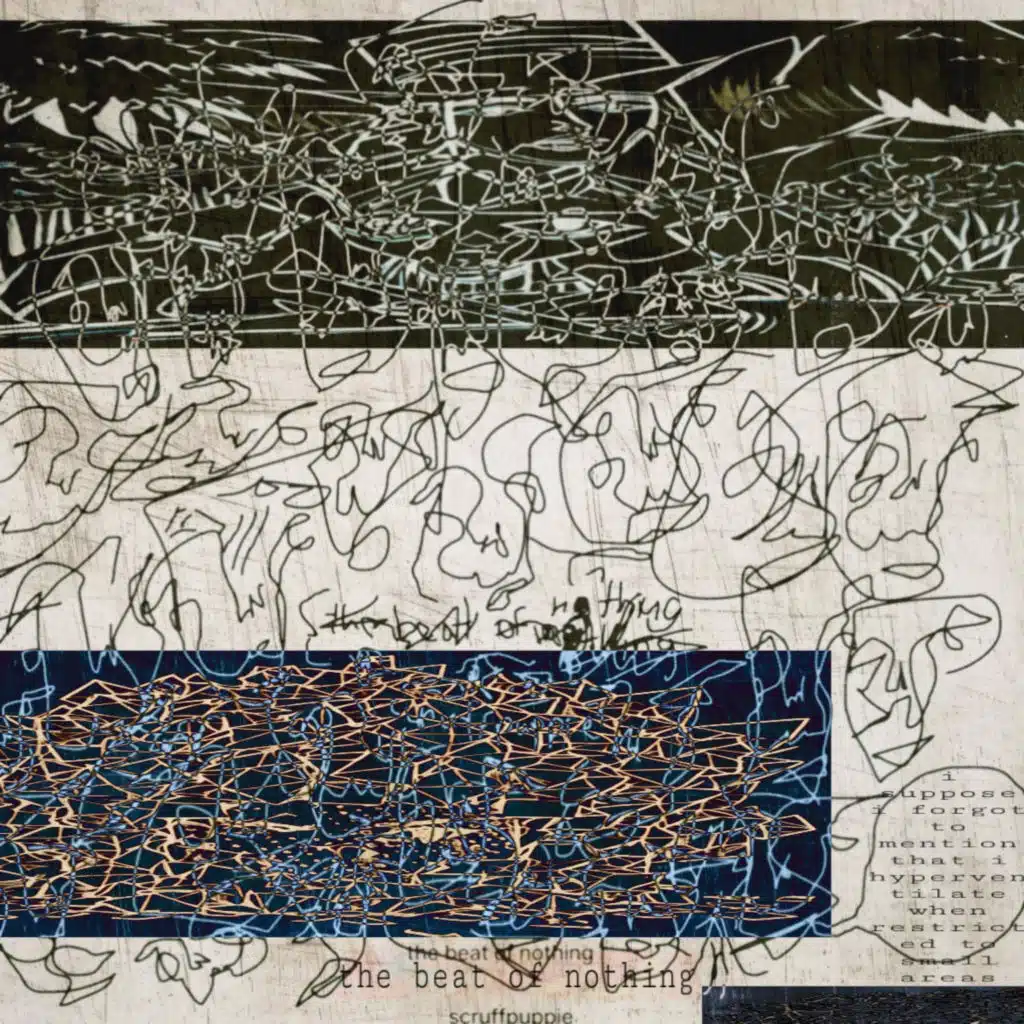 the beat of nothing
i
suppose
i forgot
to
mention
that i
hyperven
tilate
when
restrict
ed to
small
areas
the beat of nothing
the beat of nothing
scruffpuppie